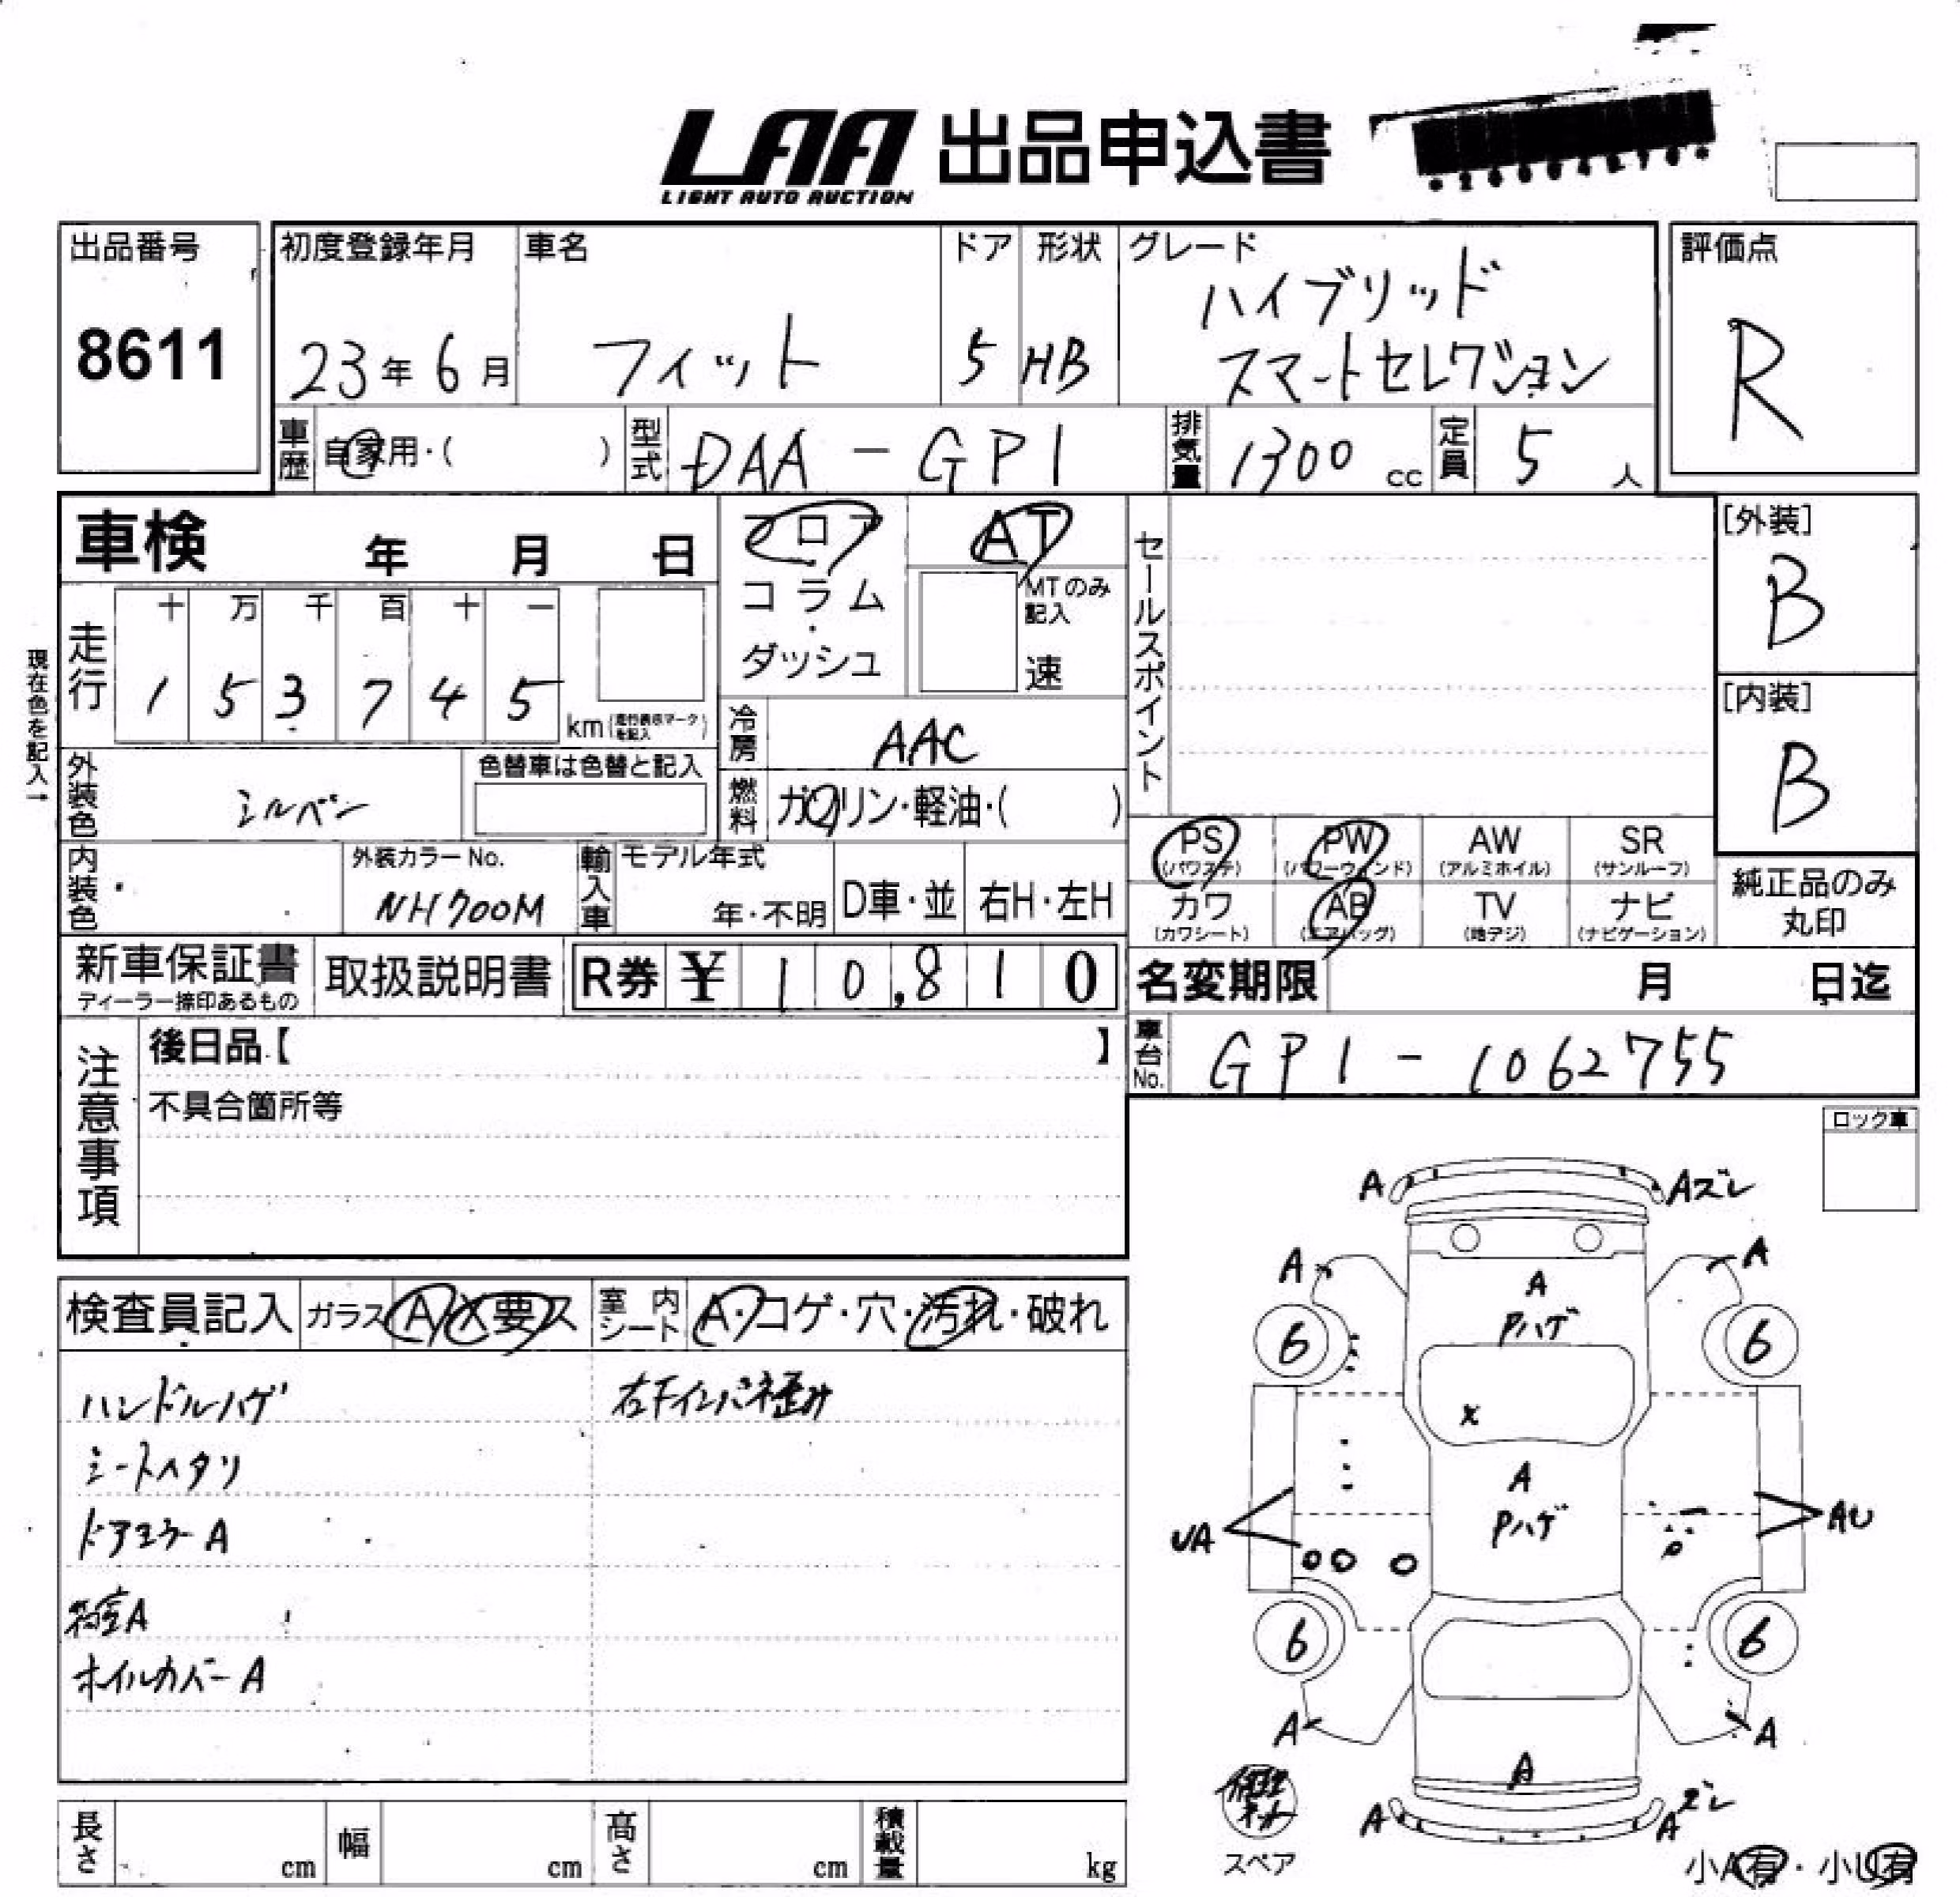 LAA 出品申込書
LIGHT AUTO AUCTION
出品番号
8611
初度登録年月
23年6月
車名
フィット
ドア
5
形状
HB
グレード
ハイブリッド
スマートセレクション
評価点
R
車歴
自家用・( )
型式
DAA-GP1
排気量
1300 cc
定員
5 人
車検 年 月 日
フロア
コラム
・
ダッシュ
AT
MTのみ
記入
速
セールスポイント
[外装]
B
[内装]
B
現在色を記入→
走行
十 万 千 百 十 一
1 5 3 7 4 5
km(走行表示マークを記入)
冷房
AAC
外装色
シルバー
色替車は色替と記入
燃料
ガソリン・軽油・( )
PS (パワステ)
PW (パワーウィンド)
AW (アルミホイル)
SR (サンルーフ)
カワ (カワシート)
AB (エアバッグ)
TV (地デジ)
ナビ (ナビゲーション)
純正品のみ
丸印
内装色
外装カラーNo.
NH700M
輸入車
モデル年式
年・不明
D車・並
右H・左H
新車保証書
ディーラー捺印あるもの
取扱説明書
R券 ¥ 10,810
名変期限 月 日迄
車台No.
GP1-1062755
注意事項
後日品【 】
不具合箇所等
ロック車
検査員記入
ガラス A X要ス
室内シート A・コゲ・穴・汚れ・破れ
ハンドルハゲ
シートヘタリ
ドアミラーA
荷室A
ホイルカバーA
右Fインパネ歪み
A
Aズレ
A
A
A
Pハゲ
6
6
X
A
Pハゲ
UA
AU
6
6
A
A
A
A
Aズレ
スペア
小A有・小U有
長さ cm
幅 cm
高さ cm
積載量 kg